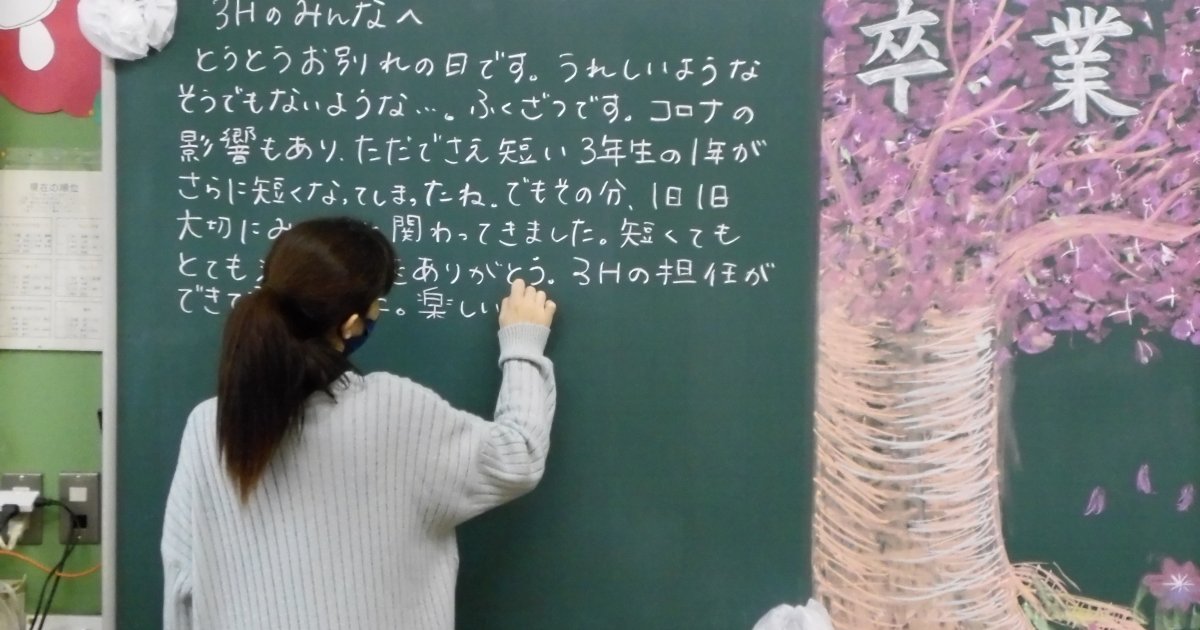 3Hのみんなへ
とうとうお別れの日です。うれしいような
そうでもないような…。ふくざつです。コロナの
影響もあり、ただでさえ短い3年生の1年が
さらに短くなってしまったね。でもその分、1日1日
大切にみ 関わってきました。短くても
とても ありがとう。3Hの担任が
できて 。楽しい
卒業
現在の順位